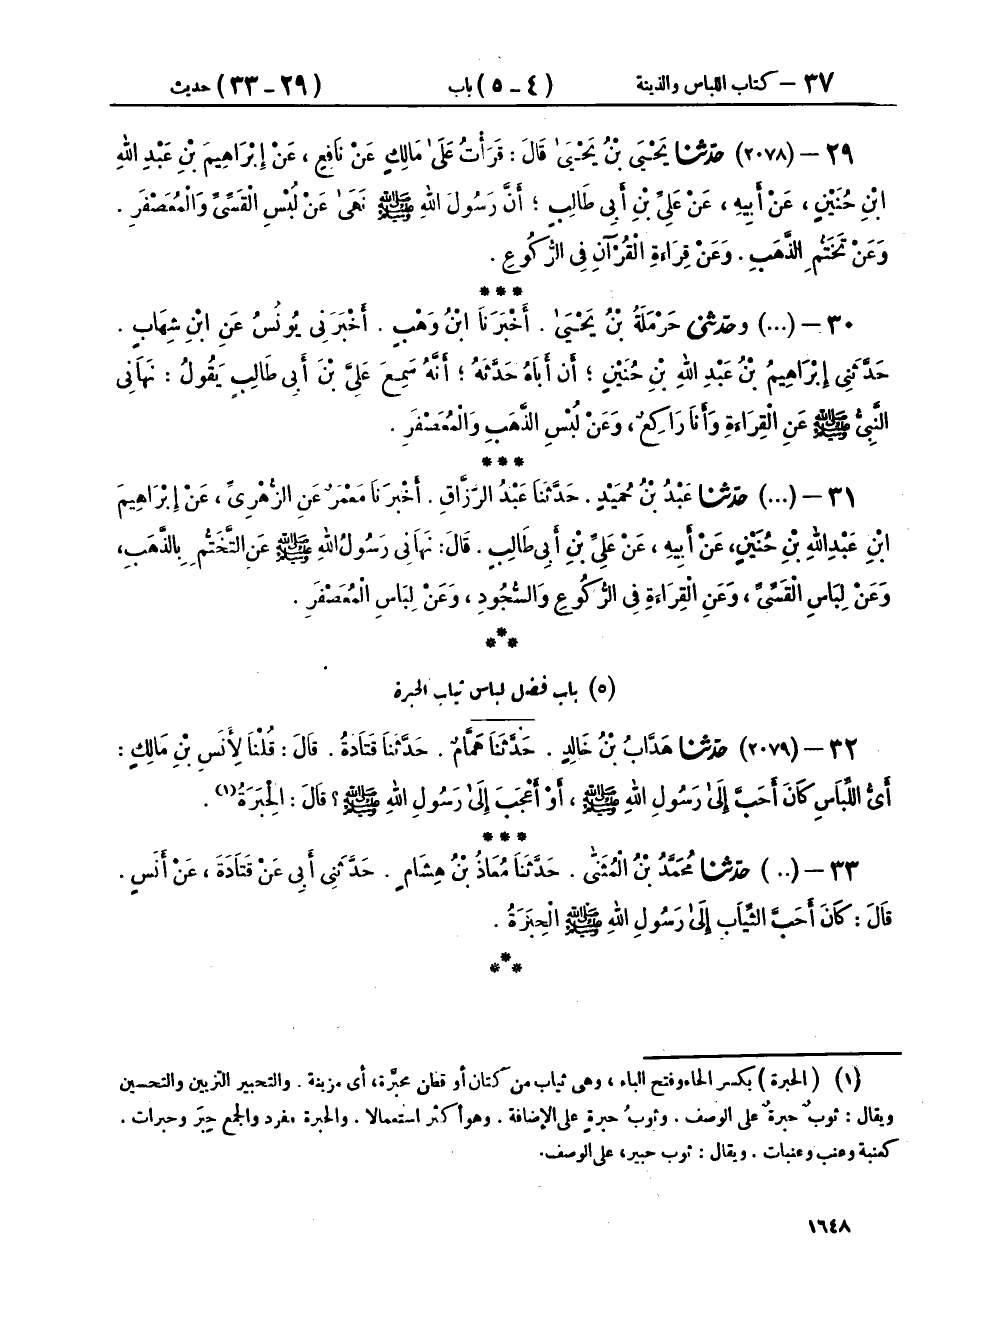 ٣٧ — كتاب اللباس والزينة (٤ - ٥) باب (٢٩ - ٣٣) حديث
٢٩ — (٢٠٧٨) حَدَّثَنَا يَحْيَى بْنُ يَحْيَىٰ قَالَ : قَرَأْتُ عَلَىٰ مَالِكٍ عَنْ نَافِعٍ ، عَنْ إِبْرَاهِيمَ بْنِ عَبْدِ اللهِ
ابْنِ حُنَيْنٍ ، عَنْ أَبِيهِ ، عَنْ عَلِيِّ بْنِ أَبِى طَالِبٍ ؛ أَنَّ رَسُولَ اللهِ ﷺ نَهَىٰ عَنْ لُبْسِ الْقَسِّىِّ وَالْمُعَصْفَرِ .
وَعَنْ تَخَتُّمِ الذَّهَبِ . وَعَنْ قِرَاءَةِ الْقُرْآنِ فِى الرُّكُوعِ .
* * *
٣٠ — (...) وحَدَّثَنِى حَرْمَلَةُ بْنُ يَحْيَىٰ . أَخْبَرَنَا ابْنُ وَهْبٍ . أَخْبَرَنِى يُونُسُ عَنِ ابْنِ شِهَابٍ .
حَدَّثَنِى إِبْرَاهِيمُ بْنُ عَبْدِ اللهِ بْنِ حُنَيْنٍ ؛ أَنَّ أَبَاهُ حَدَّثَهُ ؛ أَنَّهُ سَمِعَ عَلِىَّ بْنَ أَبِى طَالِبٍ يَقُولُ : نَهَانِى
النَّبِىُّ ﷺ عَنِ الْقِرَاءَةِ وَأَنَا رَاكِعٌ ، وَعَنْ لُبْسِ الذَّهَبِ وَالْمُعَصْفَرِ .
* * *
٣١ — (...) حَدَّثَنَا عَبْدُ بْنُ حُمَيْدٍ . حَدَّثَنَا عَبْدُ الرَّزَّاقِ . أَخْبَرَنَا مَعْمَرٌ عَنِ الزُّهْرِىِّ ، عَنْ إِبْرَاهِيمَ
ابْنِ عَبْدِاللهِ بْنِ حُنَيْنٍ، عَنْ أَبِيهِ ، عَنْ عَلِىِّ بْنِ أَبِى طَالِبٍ . قَالَ: نَهَانِى رَسُولُ اللهِ ﷺ عَنِ التَّخَتُّمِ بِالذَّهَبِ،
وَعَنْ لِبَاسِ الْقَسِّىِّ ، وَعَنِ الْقِرَاءَةِ فِى الرُّكُوعِ وَالسُّجُودِ ، وَعَنْ لِبَاسِ الْمُعَصْفَرِ .
***
(٥) باب فضل لباس ثياب الحبرة
٣٢ — (٢٠٧٩) حَدَّثَنَا هَدَّابُ بْنُ خَالِدٍ . حَدَّثَنَا هَمَّامٌ . حَدَّثَنَا قَتَادَةُ . قَالَ : قُلْنَا لِأَنَسِ بْنِ مَالِكٍ :
أَىُّ اللِّبَاسِ كَانَ أَحَبَّ إِلَىٰ رَسُولِ اللهِ ﷺ ، أَوْ أَعْجَبَ إِلَىٰ رَسُولِ اللهِ ﷺ ؟ قَالَ : الْحِبَرَةُ(١) .
* * *
٣٣ — (..) حَدَّثَنَا مُحَمَّدُ بْنُ الْمُثَنَّىٰ . حَدَّثَنَا مُعَاذُ بْنُ هِشَامٍ . حَدَّثَنِى أَبِى عَنْ قَتَادَةَ ، عَنْ أَنَسٍ .
قَالَ : كَانَ أَحَبَّ الثِّيَابِ إِلَىٰ رَسُولِ اللهِ ﷺ الْحِبَرَةُ .
***
(١) (الحبرة) بكسر الحاء وفتح الباء ، وهى ثياب من كتان أو قطن محبَّرة، أى مزينة . والتحبير التزيين والتحسين
ويقال : ثوبٌ حبرةٌ على الوصف . وثوبُ حبرةٍ على الإضافة . وهو أكثر استعمالا . والحبرة مفرد والجمع حِبَر وحبرات .
كعنبة وعنب وعنبات . ويقال : ثوب حبير، على الوصف.
١٦٤٨